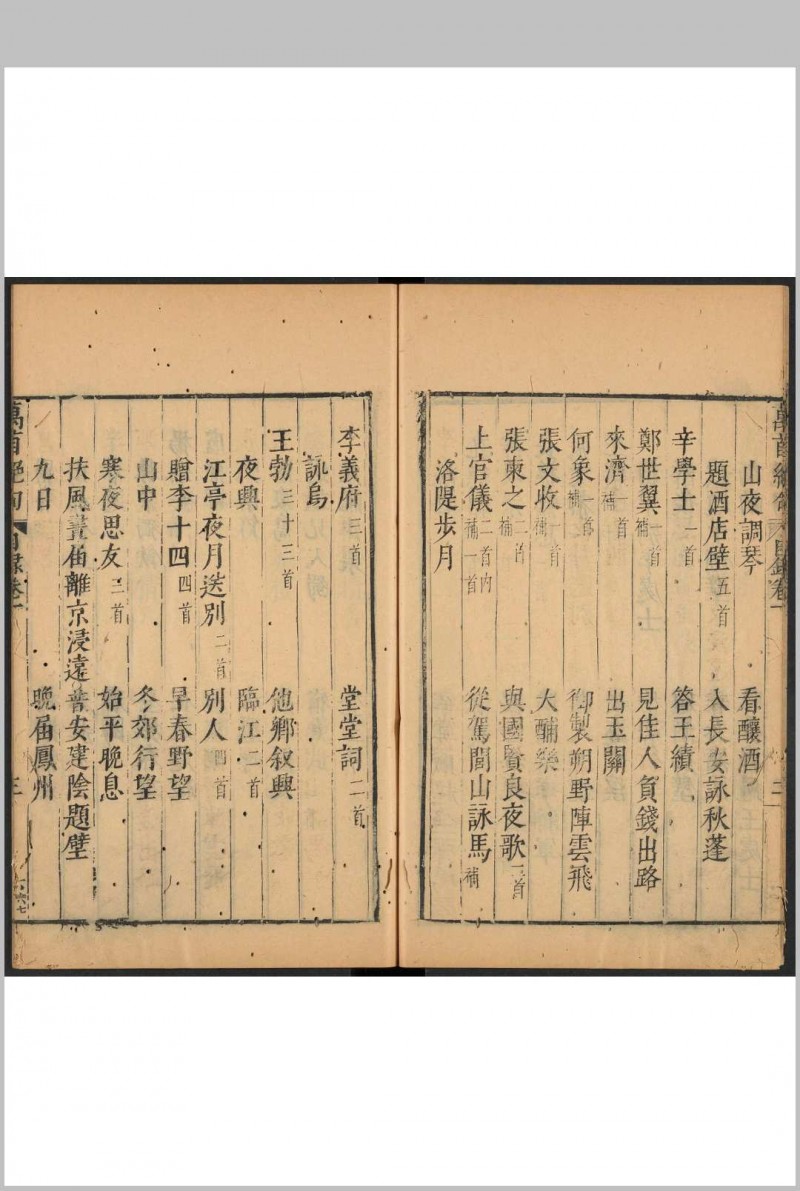 萬首絕句 目錄卷一 三
山夜調琴 看釀酒
題酒店壁五首 入長安詠秋蓬
辛學士一首 答王績
鄭世翼一首補 見佳人負錢出路
來濟一首補 出玉關
何象一首補 御製朔野陣雲飛
張文收一首補 大酺樂
張柬之二首補 與國賢良夜歌二首
上官儀二首內補一首 從駕閭山詠馬補
洛隄步月
李義府三首 堂堂詞二首
詠烏
王勃三十三首 他鄉叙興
夜興 臨江二首
江亭夜月送別二首 別人四首
贈李十四四首 早春野望
山中 冬郊行望
寒夜思友三首 始平晚息
扶風晝屆離京浸遠 普安建陰題壁
九日 晚屆鳳州
萬首絕句 目錄卷一 三